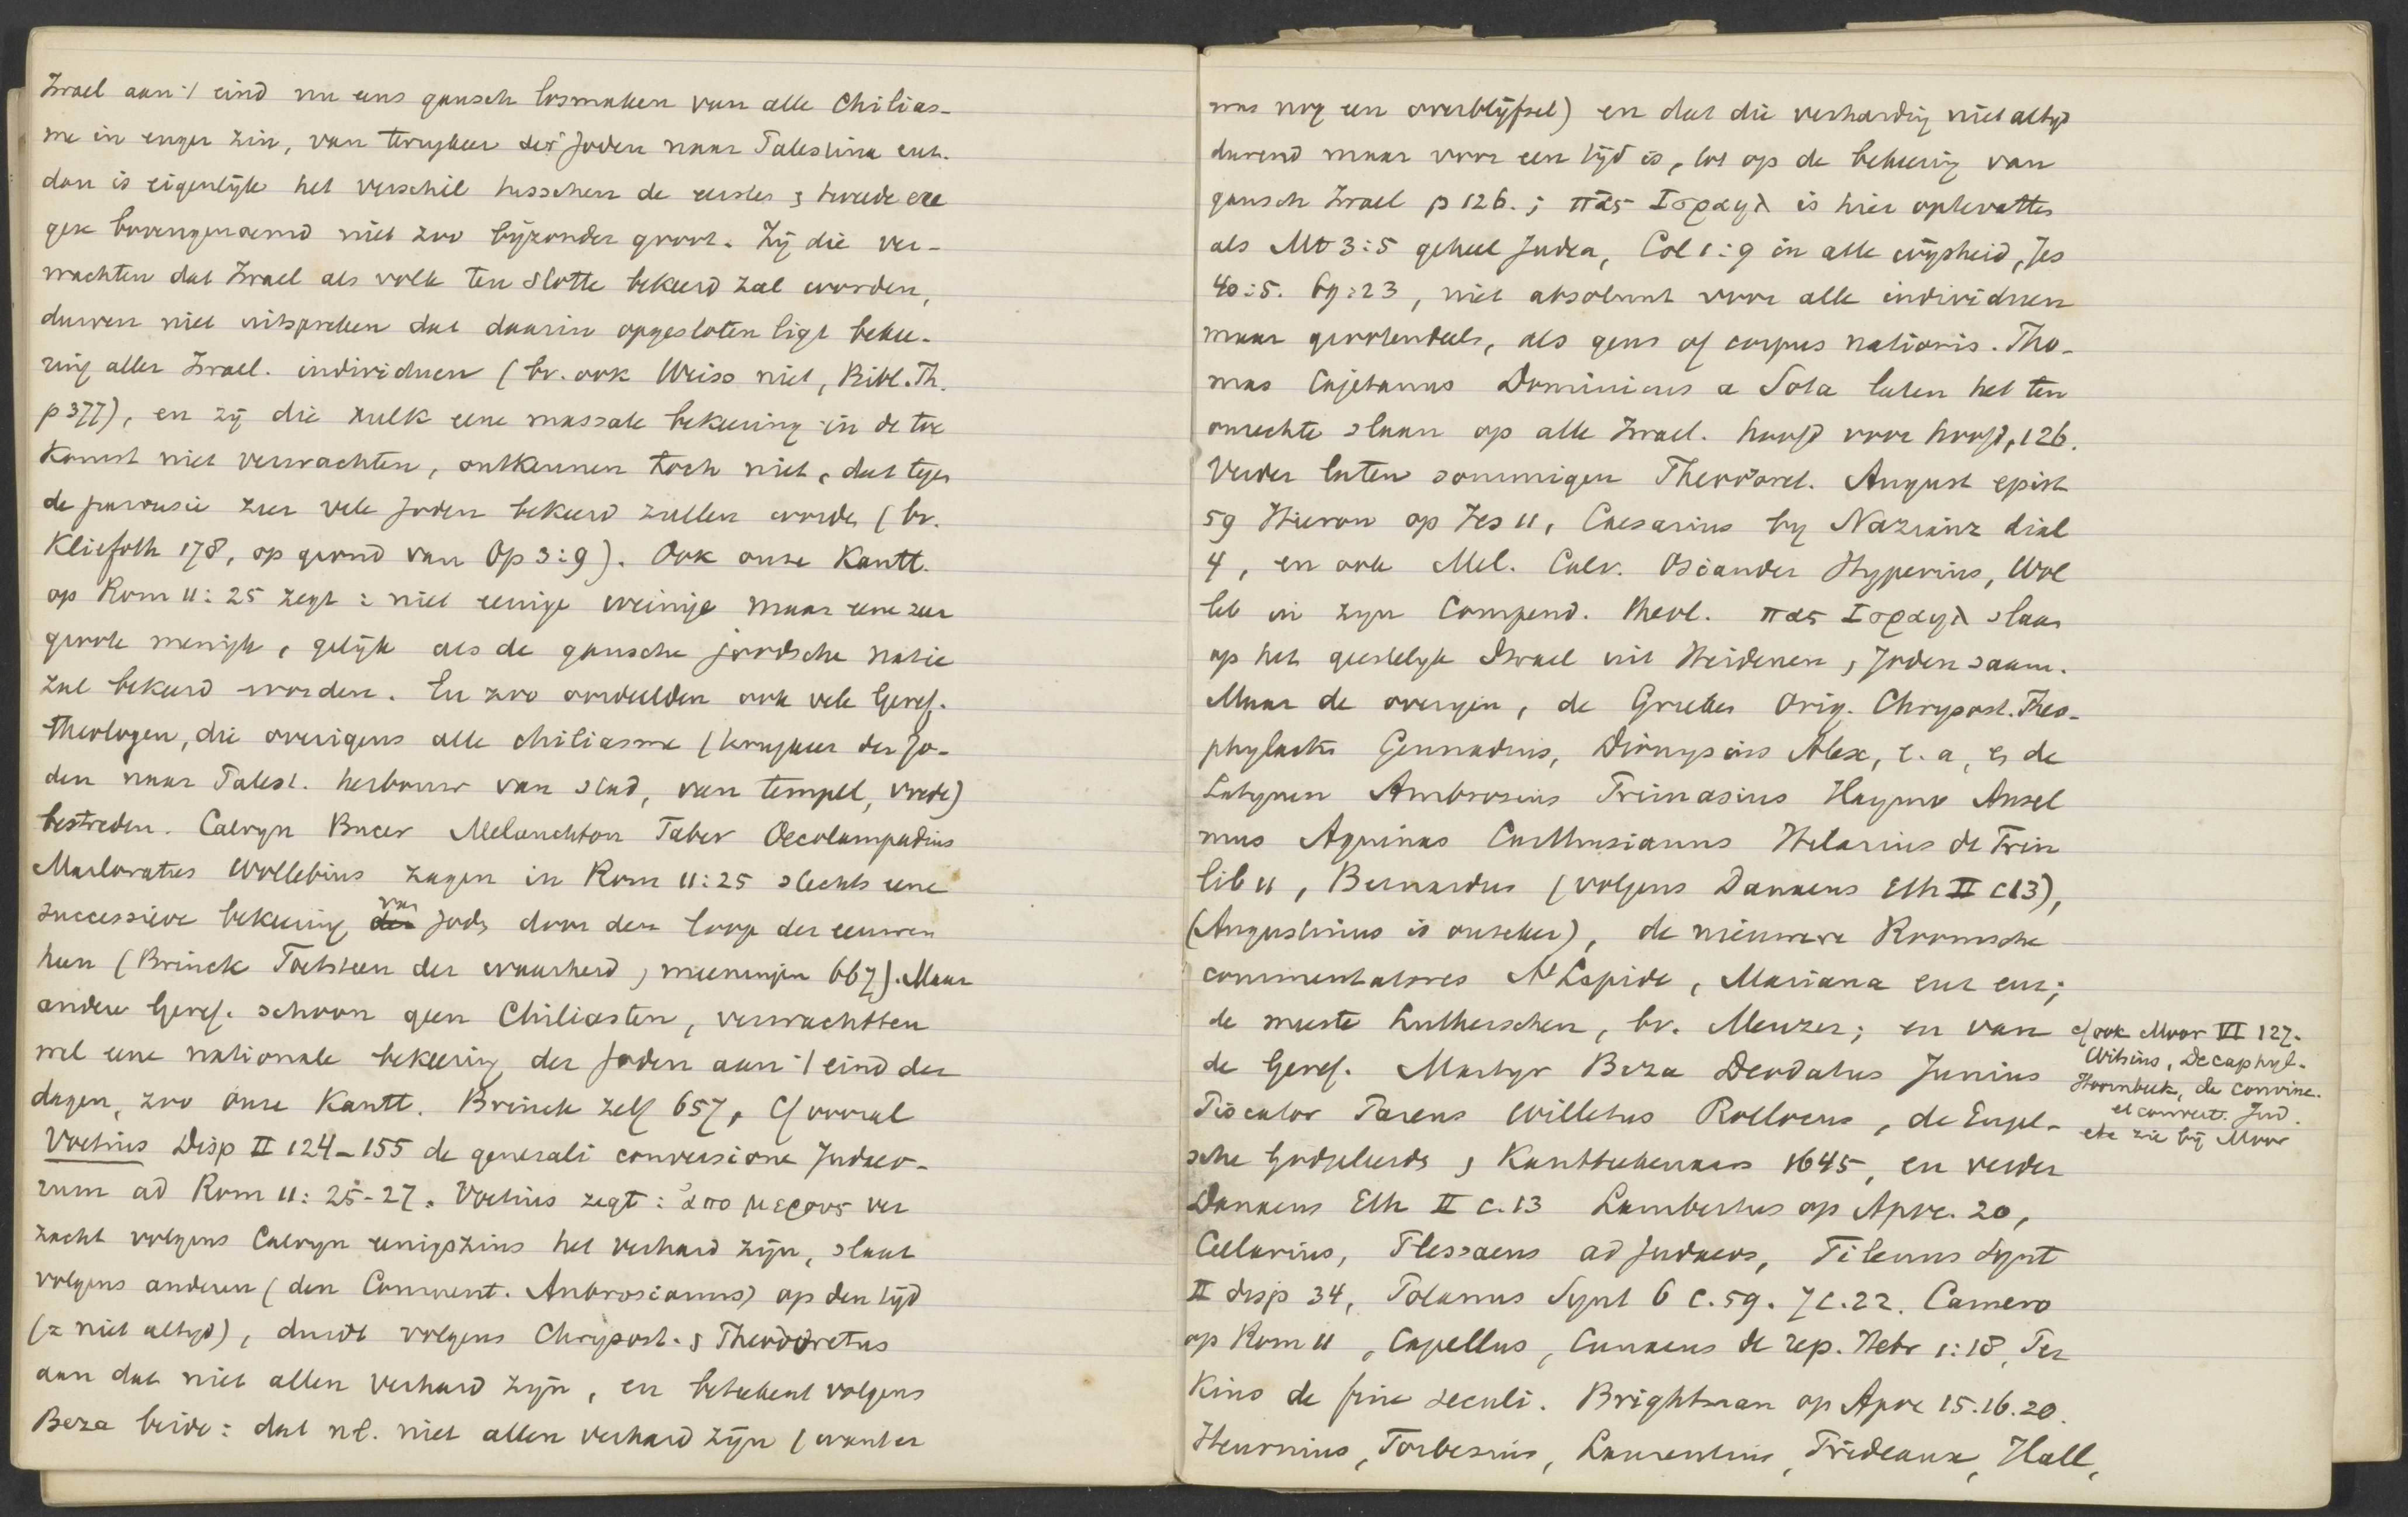 Israel aan 't eind nu eens gansch losmaken van alle Chilias-
me in enger zin, van terugkeer der Joden naar Palestina enz.
dan is eigenlijk het verschil tusschen de eerste & tweede exe
gese bovengenoemd niet zoo bijzonder groot. Zij die ver-
wachten dat Israel als volk ten slotte bekeerd zal worden,
durven niet uitspreken dat daarin opgesloten ligt bekee-
ring aller Israel. individuen (bv. ook Weiss niet, Bibl. Th.
p 377), en zij die zulk eene massale bekeering in de toe
komst niet verwachten, ontkennen toch niet, dat tegen
de parousie zeer vele Joden bekeerd zullen worden (bv.
Kliefoth 178, op grond van Op 3:9). Ook onze Kantt.
op Rom 11:25 zegt: niet eenige weinige maar eene zeer
groote menigte, gelijk als de gansche joodsche natie
zal bekeerd worden. En zoo oordeelden ook vele Geref.
theologen, die overigens alle chiliasme (terugkeer der Jo-
den naar Palest. herbouw van stad, van tempel, vrede)
bestreden. Calvyn Bucer Melanchton Faber Oecolampadius
Marloratus Wollebius zagen in Rom 11:25 slechts eene
successieve bekeering van Joden door den loop der eeuwen
heen (Brinck Toetsteen der waarheid & meeningen 667). Maar
andere Geref. schoon geen Chiliasten, verwachtten
wel eene nationale bekeering der Joden aan 't eind der
dagen, zoo onze Kantt. Brinck zelf 657, Cf vooral
Voetius Disp II 124-155 de generali conversione Judaeo-
rum ad Rom 11:25-27. Voetius zegt: ἀπο μερους ver
zacht volgens Calvyn eenigszins het verhard zijn, slaat
volgens anderen (den Comment. Ambrosianus) op den tijd
(= niet altyd), duidt volgens Chrysost. & Theodoretus
aan dat niet allen verhard zijn, en beteekent volgens
Beza beide: dat nl. niet allen verhard zijn (want er
was nog een overblijfsel) en dat die verharding niet altyd
durend maar voor een tijd is, tot op de bekeering van
gansch Israel p 126.; πας Ισραηλ is hier optevatten
als Mt 3:5 geheel Judea, Col 1:9 in alle wijsheid, Jes
40:5. 69:23, niet absoluut voor alle individuen
maar grootendeels, als gens of corpus nationis. Tho-
mas Cajetanus Dominicus a Sota laten het ten
onrechte slaan op alle Israel. hoofd voor hoofd, 126.
Verder laten sommigen Theodoret. August epist
59 Hieron op Jes 11, Caesarius by Nazianz dial
4, en ook Mel. Calv. Osiander Hyperius, Wol
leb in zyn Compend. theol. πας Ισραηλ slaan
op het geestelyk Israel uit Heidenen & Joden saam.
Maar de overigen, de Grieken Orig. Chrysost. Theo-
phylactus Gennadius, Dionysius Alex, e.a, en de
Latynen Ambrosius Primasius Haymo Ansel
mus Aquinas Carthusianus Hilarius de Trin
lib 11, Bernardus (volgens Danaeus Eth II c13),
(Augustinus is onzeker), de nieuwere Roomsche
commentatores A Lapide, Mariana enz enz;
de meeste Lutherschen, bv. Menzer; en van
de Geref. Martyr Beza Deodatus Junius
Piscator Pareus Willetus Rollocus, de Engel-
sche Godgeleerden & Kantteekenaars 1645, en verder
Danaeus Eth II c.13 Lambertus op Apoc. 20,
Cellarius, Plessaeus ad Judaeos, Tilenus Synt
II disp 34, Polanus Synt 6 c.59. 7 c.22. Camero
op Rom 11, Capellus, Cunaeus de rep. Hebr 1:18, Per
kins de fine seculi. Brightman op Apoc 15.16.20.
Heurnius, Forbesius, Laurentius, Prideaux, Hall,
cf ook Moor VI 127.
Witsius, Decaphyl.
Hoornbeek, de convinc.
et convert. Jud.
etc zie bij Moor